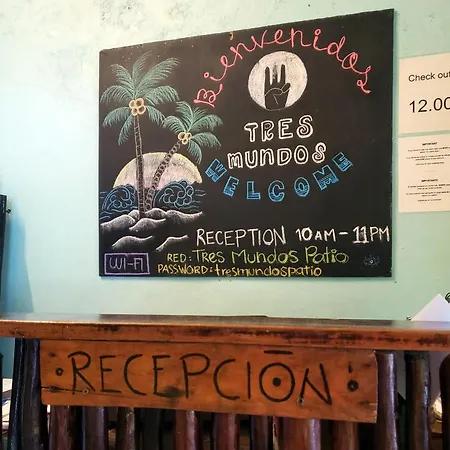 Bienvenidos
TRES
MUNDOS
WELCOME
RECEPTION 10AM - 11PM
WI-FI
RED: Tres Mundos Patio
PASSWORD: tresmundospatio
Check out
12.00
IMPORTANT
IMPORTANTE
RECEPCIÓN